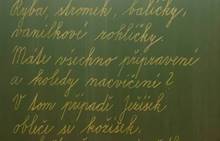 Ryba, stromek, balíčky,
vanilkové rohlíčky.
Máte všechno připravené
a koledy nacvičené?
V tom případě Ježíšek
obleče si kožíšek.